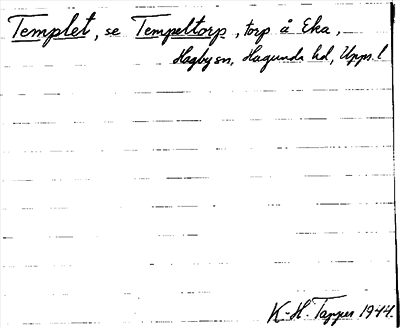 Templet, se Tempeltorp, torp å Eka,
Hagby sn, Hagunda hd, Upps. l
K-H. Tapper 1944.